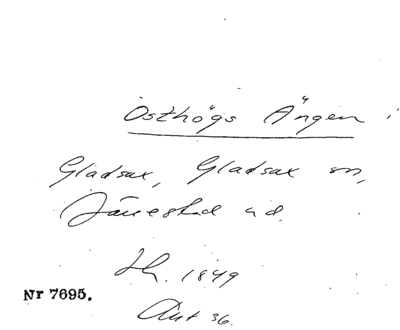 Östhögs Ängen
Gladsax, Gladsax sn,
Järrestad hd.
Lh. 1849
Nr 7695.
Akt 36